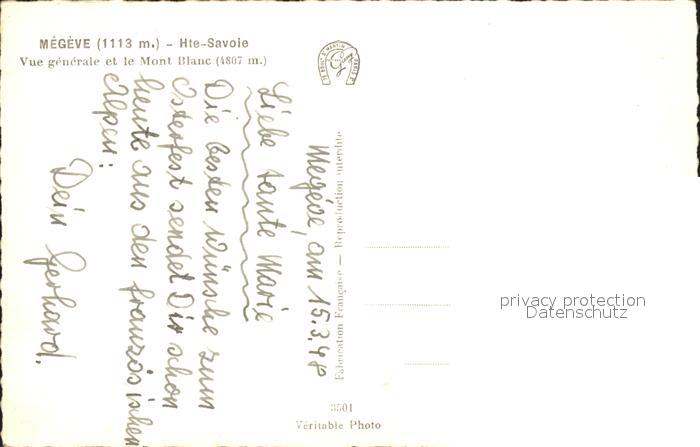 MÉGÈVE (1113 m.) – Hte-Savoie
Vue générale et le Mont Blanc (4807 m.)
Megève, am 15.3.48
Liebe Tante Marie
Die besten Wünsche zum
Osterfest sendet Dir schon
heute aus den französischen
Alpen:
Dein Gerhard.
Fabrication Française — Reproduction interdite
3501
Véritable Photo
privacy protection
Datenschutz